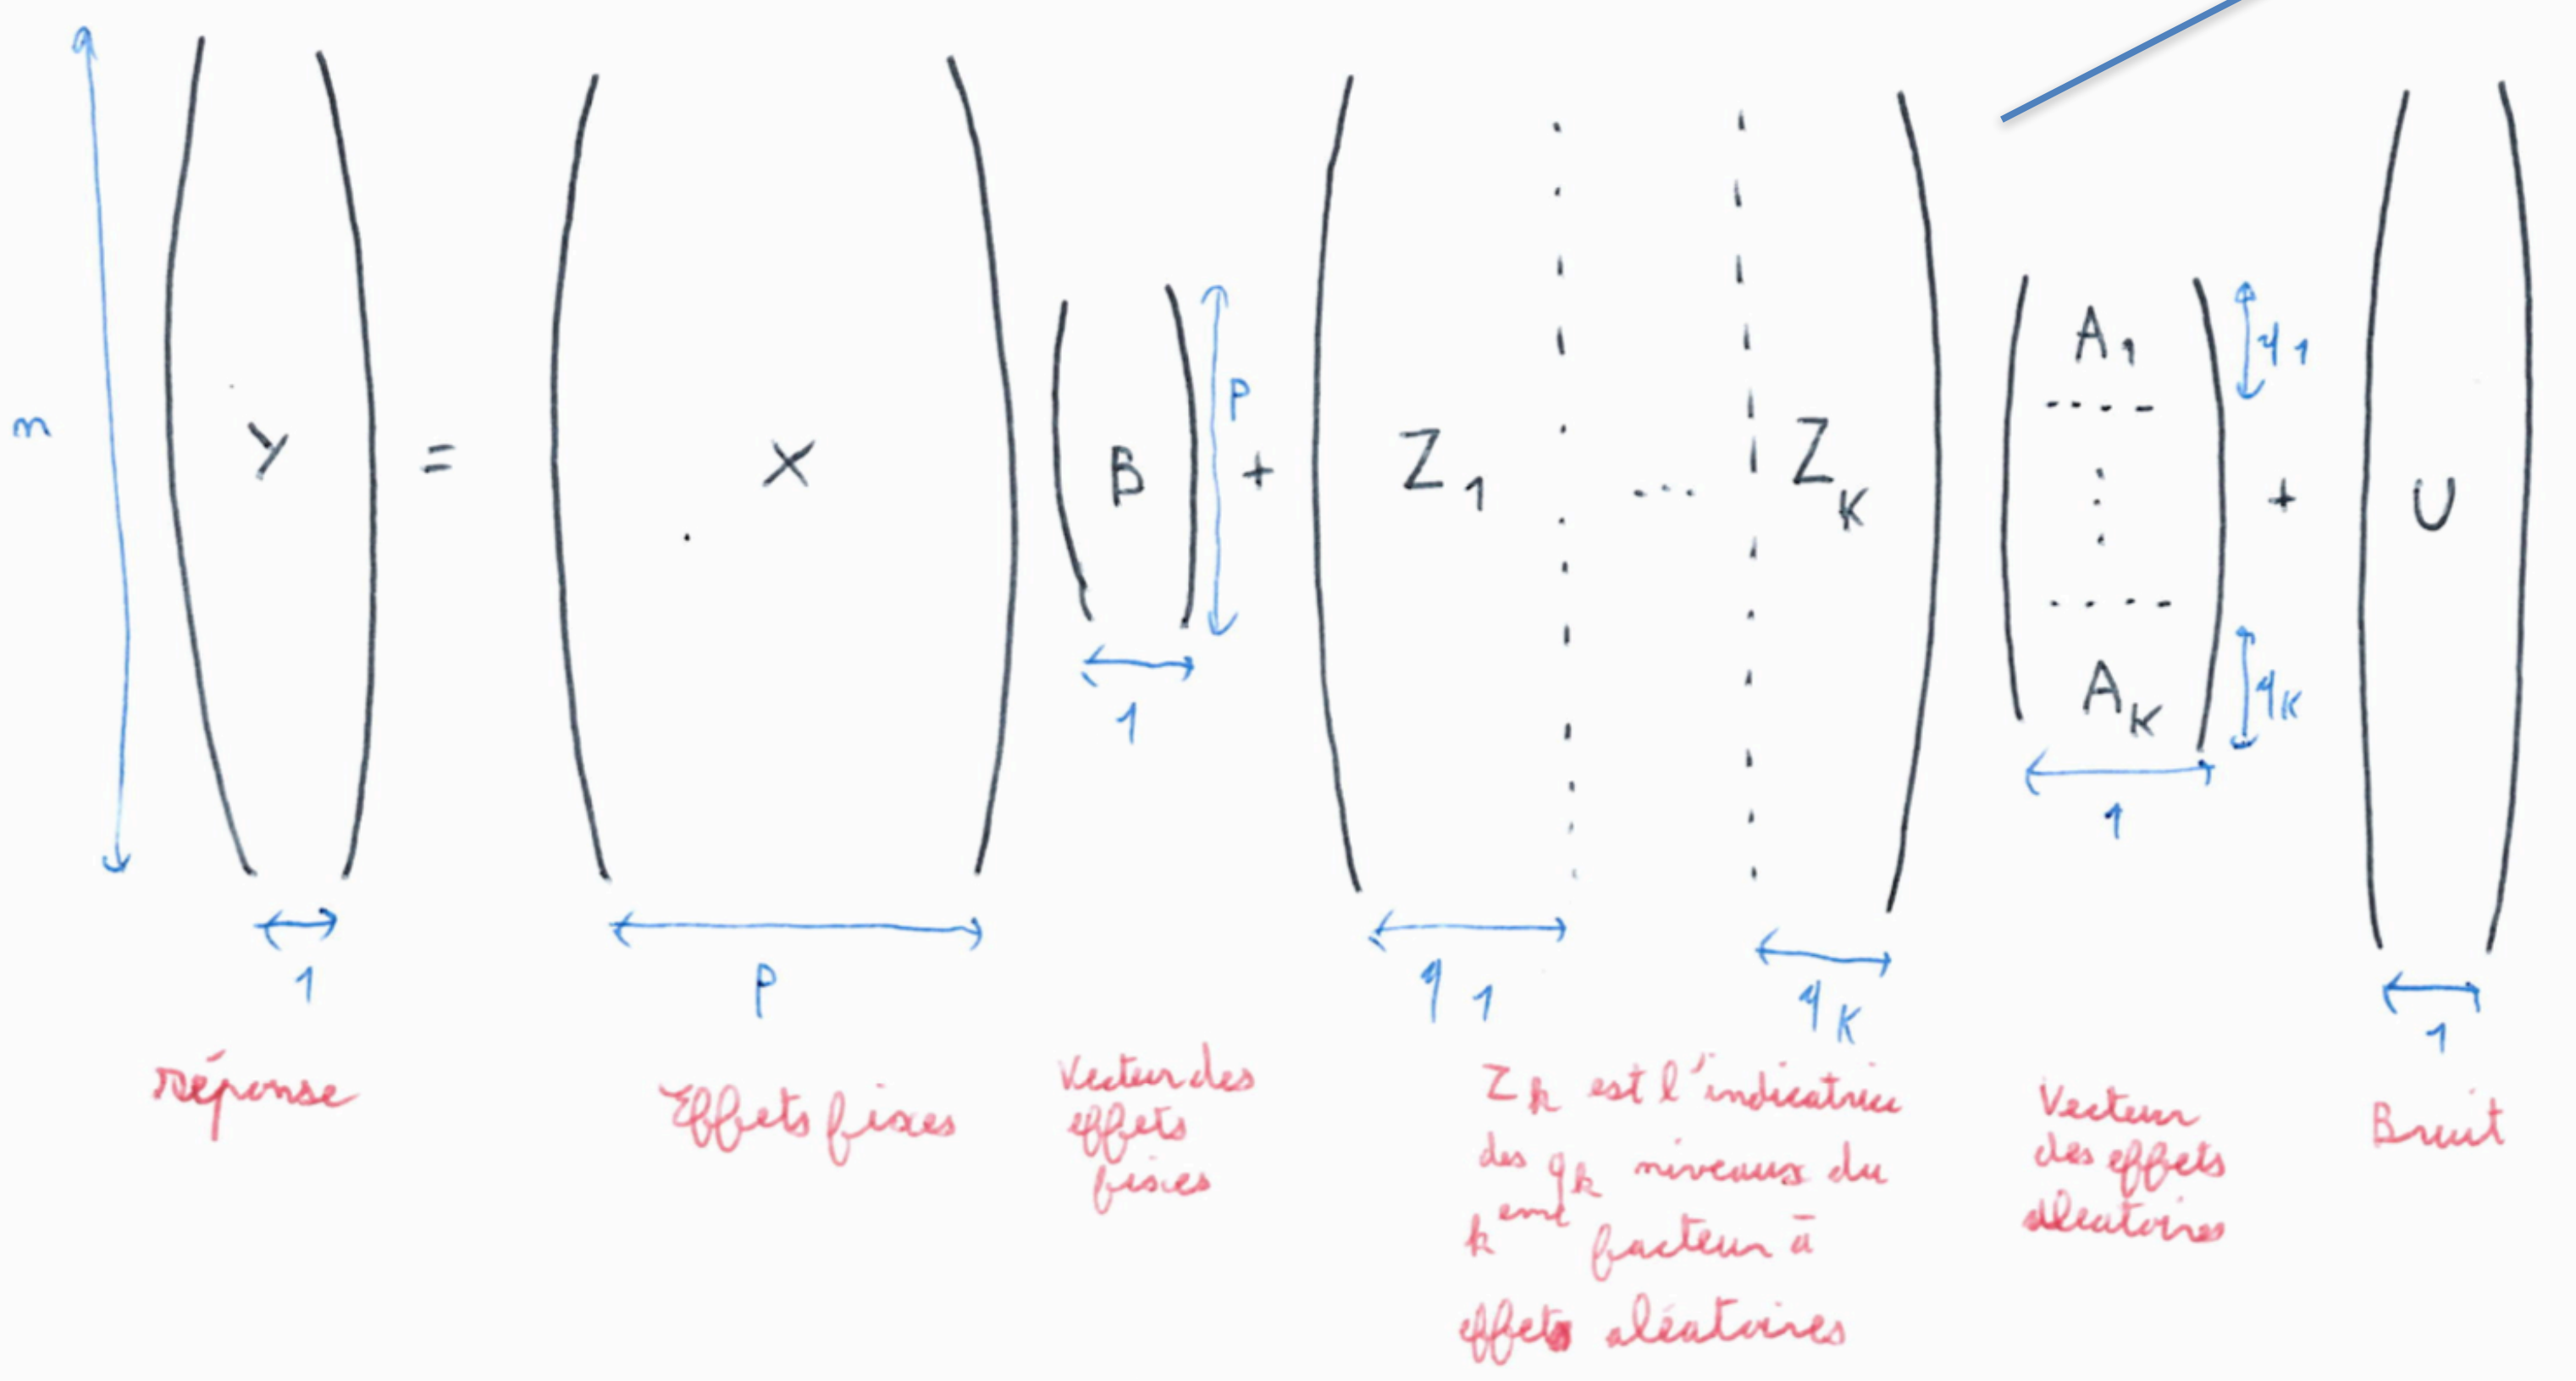 n
Y = X B + Z₁ ... Z_K A₁ ⋮ A_K + U
p
q₁
q_K
1
1
1 p q₁ q_K 1
réponse
Effets fixes
Vecteur des
effets
fixes
Z_k est l'indicatrice
des q_k niveaux du
k^eme facteur à
effets aléatoires
Vecteur
des effets
aléatoires
Bruit